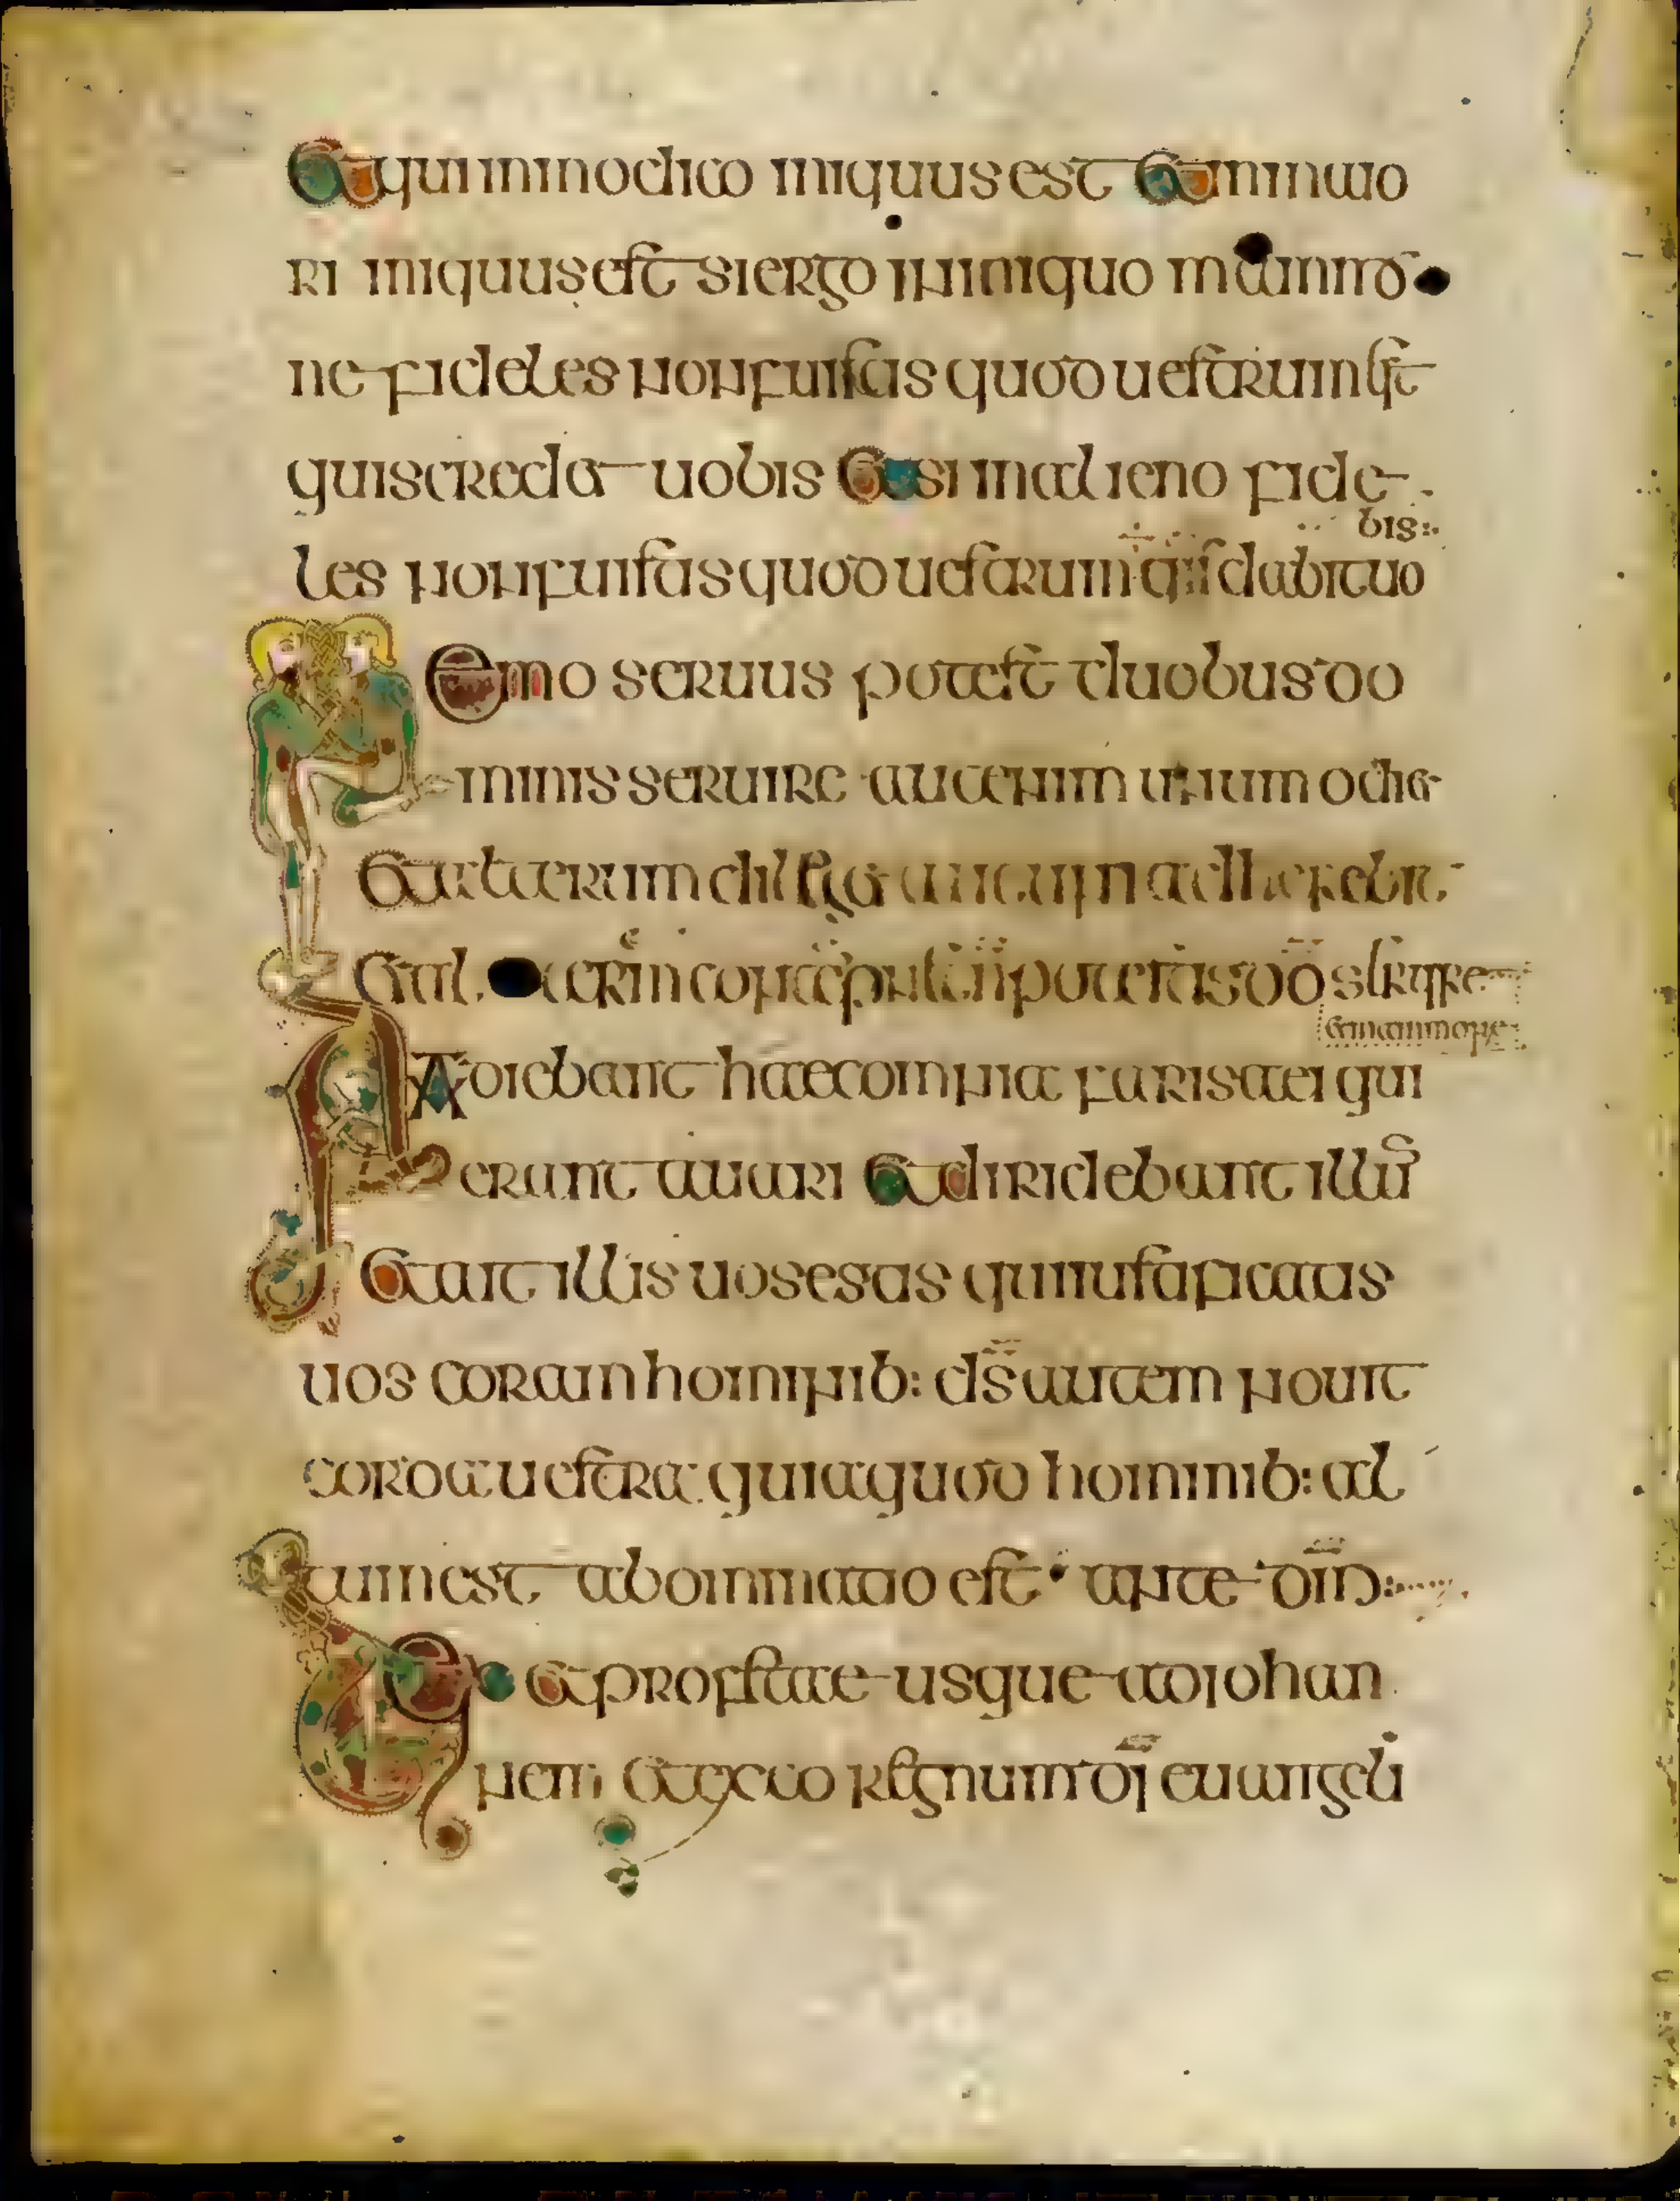 Et qui in modico iniquus est et in maio
ri iniquus est si ergo in iniquo mamino
ne fideles non fuistis quod uestrum est
quis credet uobis et si in alieno fide
bis
les non fuistis quod uestrum quis dabit uo
Nemo seruus potest duobus do
minis seruire aut enim unum odiet
et alterum diliget aut uni adherebit
et alterum contempnet non potestis dō seruire
et mammone
Audiebant haec omnia farisaei qui
erant auari et diridebant illū
et ait illis uos estis qui iustificatis
uos coram hominib: ds autem nouit
corda uestra quia quod hominib: al
tum est abominatio est ante dm
Lex et profetae usque ad iohan
nem et ex eo regnum di euangeli